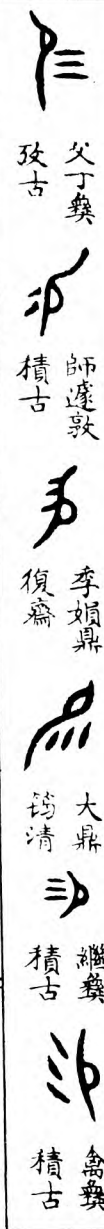 父丁彝
攷古
師遽敦
積古
季娟鼎
復齋
大鼎
筠清
繼彝
積古
禽彝
積古